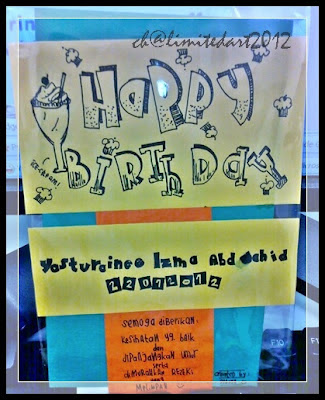 ch@limitedart2012
HAPPY
ice-cream!
BIRTHDAY
Yosturaineo Izma Abd
22012012
semoga diberikan
kesihatan yg baik
dan
dipanjangkan umur
serta
dimurahkan rezeki
F10